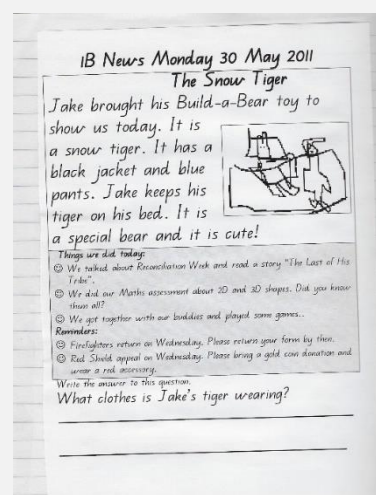 1B News Monday 30 May 2011
The Snow Tiger
Jake brought his Build-a-Bear toy to
show us today. It is
a snow tiger. It has a
black jacket and blue
pants. Jake keeps his
tiger on his bed.. It is
a special bear and it is cute!
Things we did today:
☺ We talked about Reconciliation Week and read a story "The Last of His
Tribe".
☺ We did our Maths assessment about 2D and 3D shapes. Did you know
them all?
☺ We got together with our buddies and played some games..
Reminders:
☺ Firefighters return on Wednesday. Please return your form by then.
☺ Red Shield appeal on Wednesday. Please bring a gold coin donation and
wear a red accessory.
Write the answer to this question.
What clothes is Jake's tiger wearing?